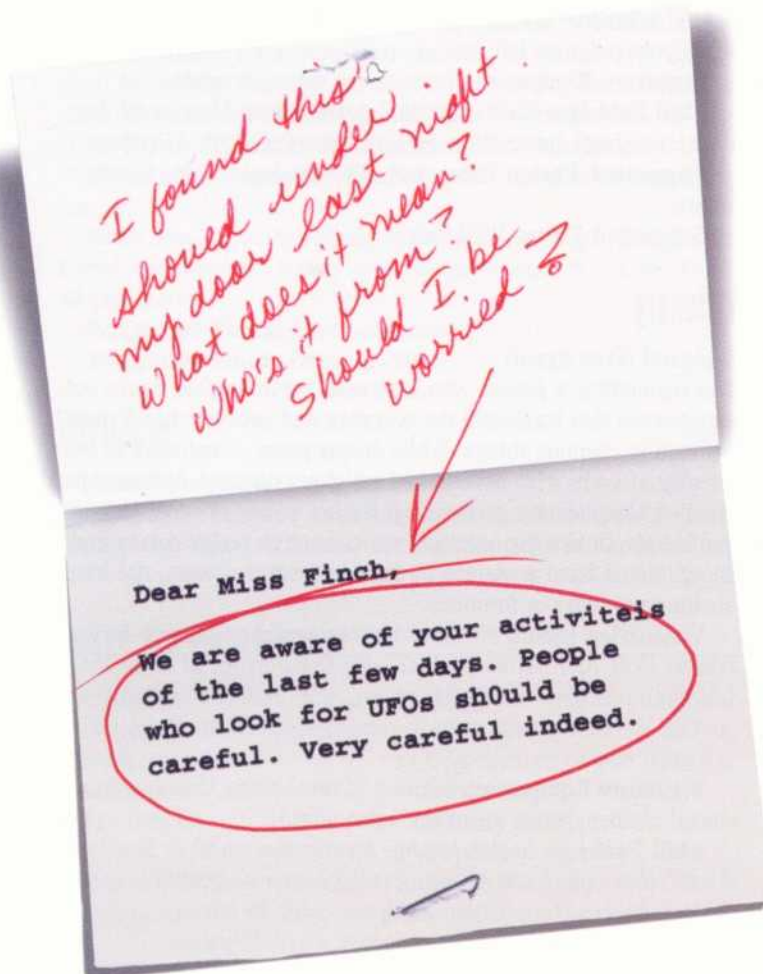 I found this
shoved under
my door last night.
What does it mean?
Who's it from?
Should I be
worried?
Dear Miss Finch,
We are aware of your activiteis
of the last few days. People
who look for UFOs sh0uld be
careful. Very careful indeed.